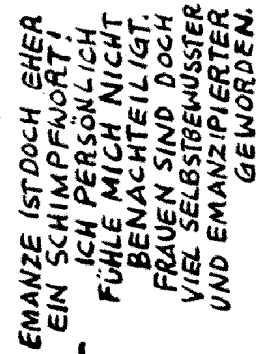 EMANZE IST DOCH EHER
EIN SCHIMPFWORT!
ICH PERSÖNLICH
FÜHLE MICH NICHT
BENACHTEILIGT.
FRAUEN SIND DOCH
VIEL SELBSTBEWUSSTER
UND EMANZIPIERTER
GEWORDEN.